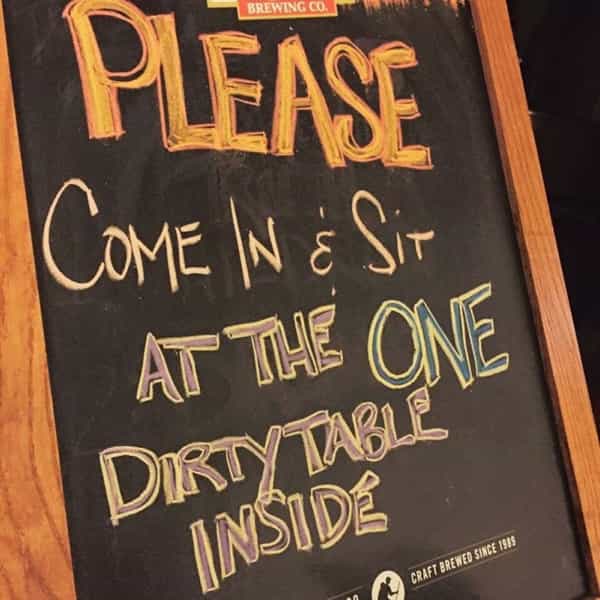 BREWING CO.
PLEASE
COME IN & SIT
AT THE ONE
DIRTY TABLE
INSIDE
CRAFT BREWED SINCE 1989